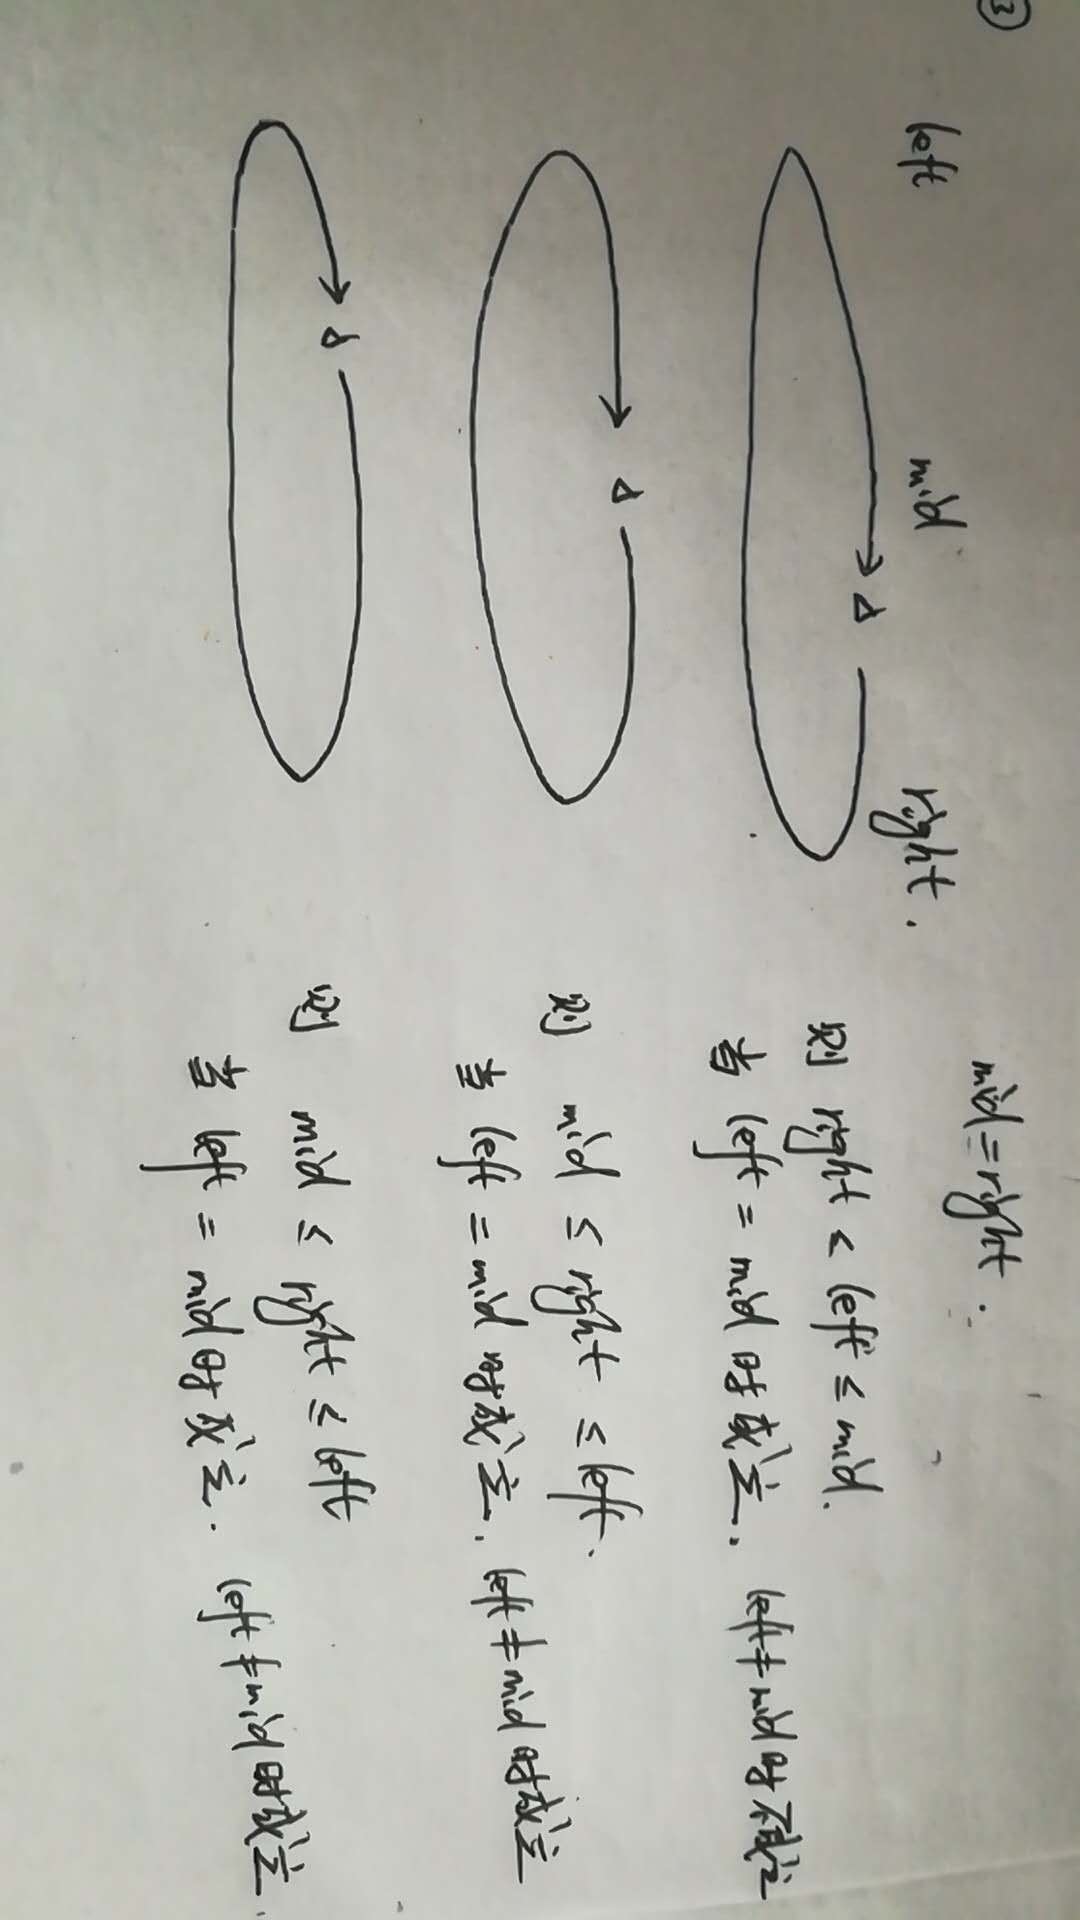 ③
left mid right. mid=right.
a 则 right < left ≤ mid.
当 left = mid 时成立. left≠mid 时不成立
a 则 mid ≤ right ≤ left.
当 left = mid 时成立. left≠mid 时成立
a 则 mid ≤ right ≤ left
当 left = mid 时成立. left≠mid 时成立.